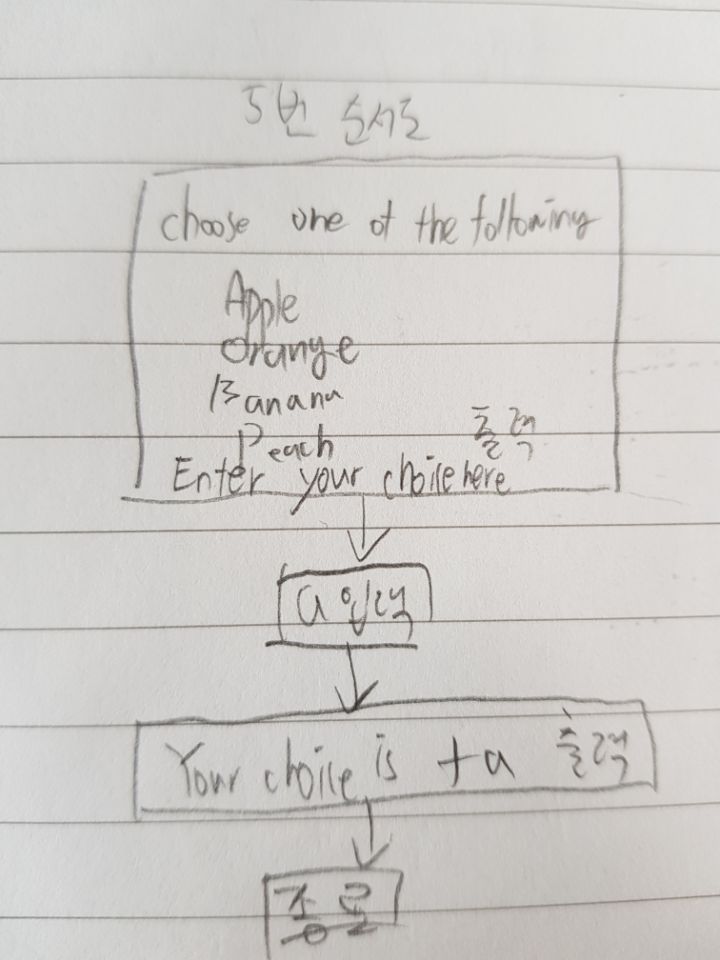 5번 순서도
choose one of the following
Apple
Orange
Banana
Peach 출력
Enter your choice here
a 입력
Your choice is +a 출력
종료